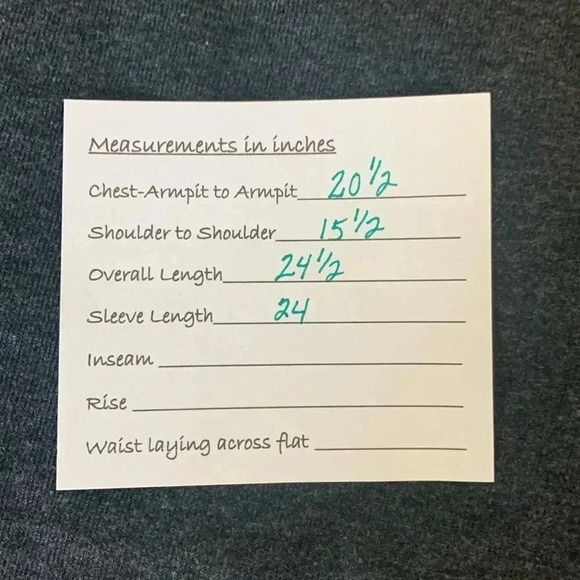 Measurements in inches
Chest-Armpit to Armpit 20 1/2
Shoulder to Shoulder 15 1/2
Overall Length 24 1/2
Sleeve Length 24
Inseam
Rise
Waist laying across flat